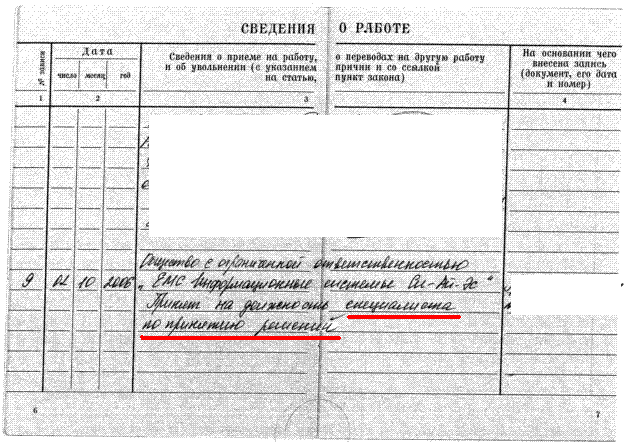 СВЕДЕНИЯ О РАБОТЕ
№ записи
Дата
число месяц год
Сведения о приеме на работу, о переводах на другую работу
и об увольнении (с указанием причин и со ссылкой
на статью, пункт закона)
На основании чего
внесена запись
(документ, его дата
и номер)
1 2 3 4
Общество с ограниченной ответственностью
9 02 10 2006 „ЕМС Информационные системы Си-Ай-Эс"
Принят на должность специалиста
по принятию решений
6 7